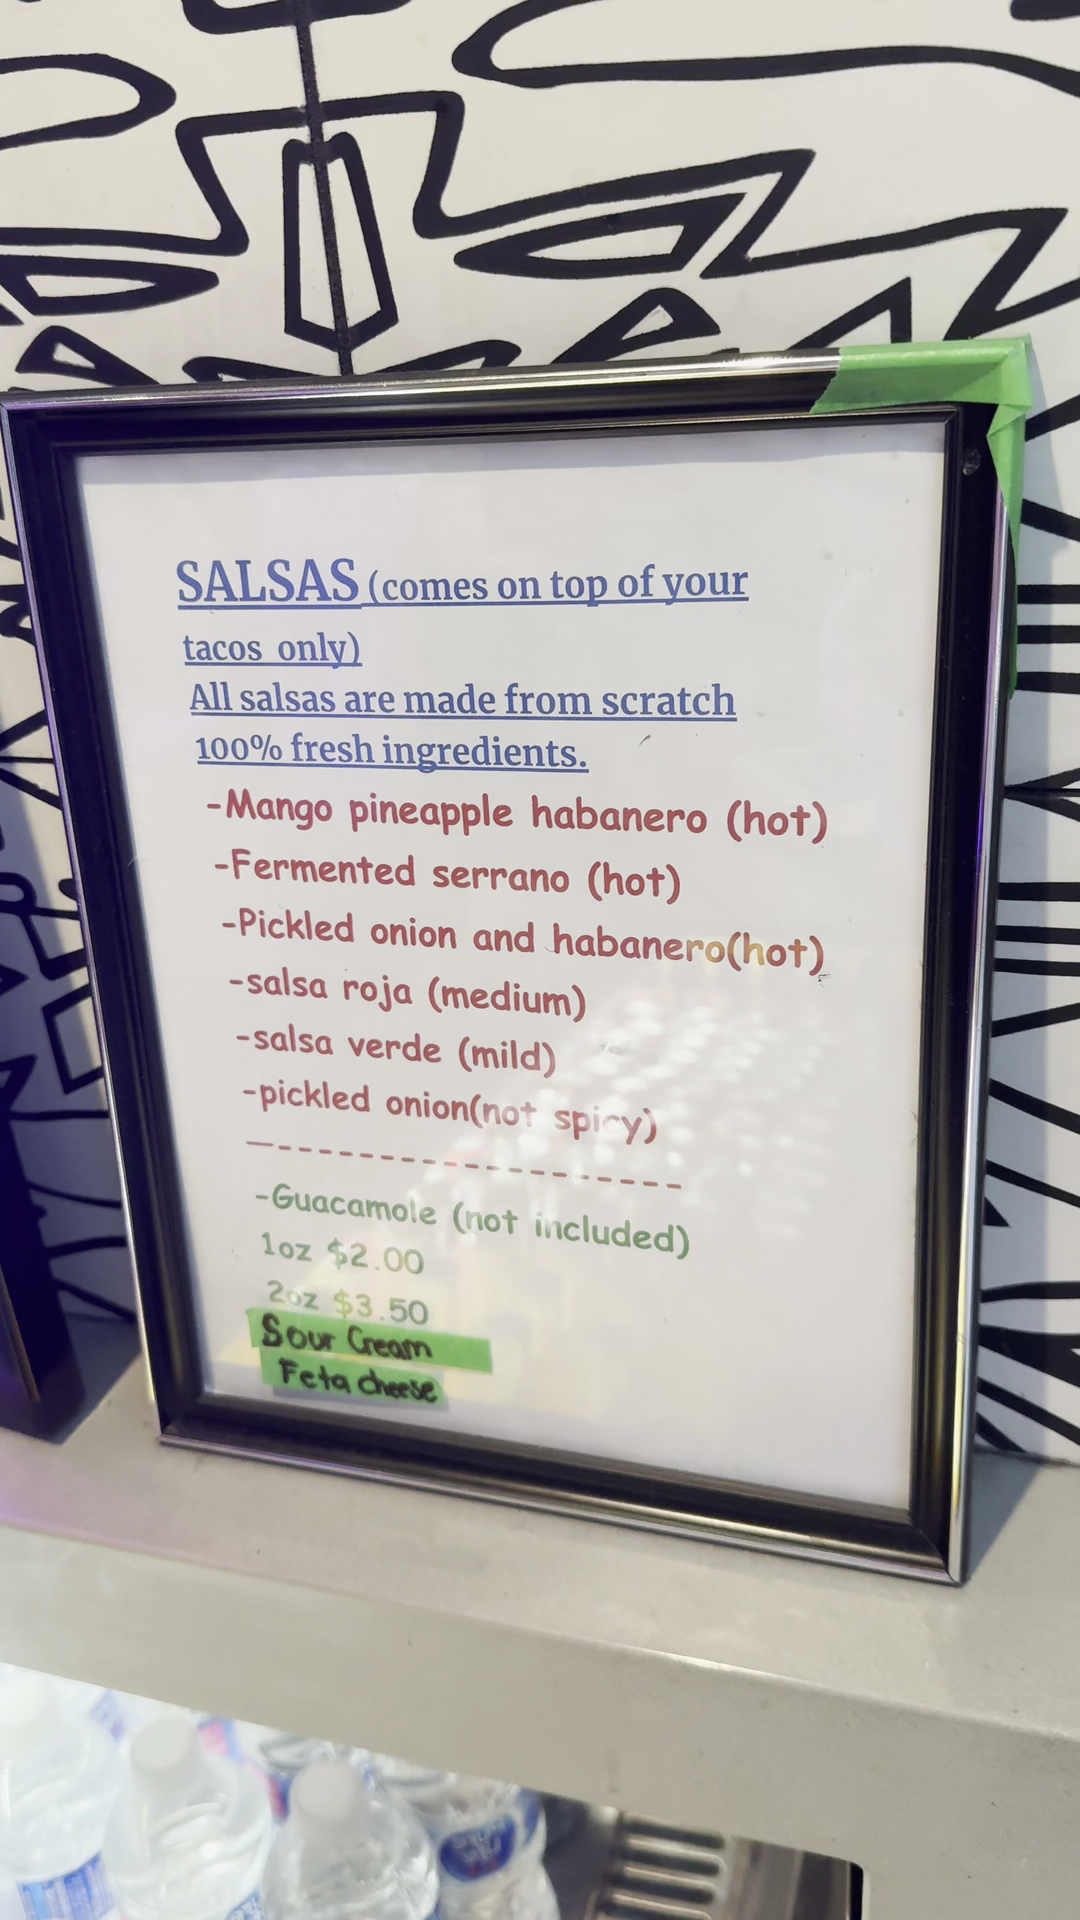 SALSAS (comes on top of your
tacos only)
All salsas are made from scratch
100% fresh ingredients.
-Mango pineapple habanero (hot)
-Fermented serrano (hot)
-Pickled onion and habanero(hot)
-salsa roja (medium)
-salsa verde (mild)
-pickled onion(not spicy)
---------------------
-Guacamole (not included)
1oz $2.00
2oz $3.50
Sour Cream
Feta cheese